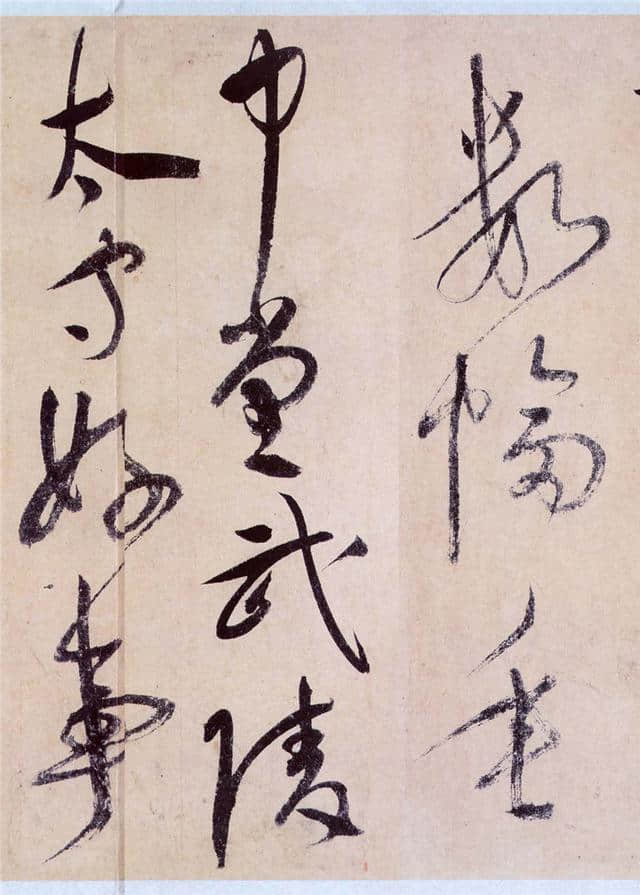 數幅垂
中堂武陵
太守好事